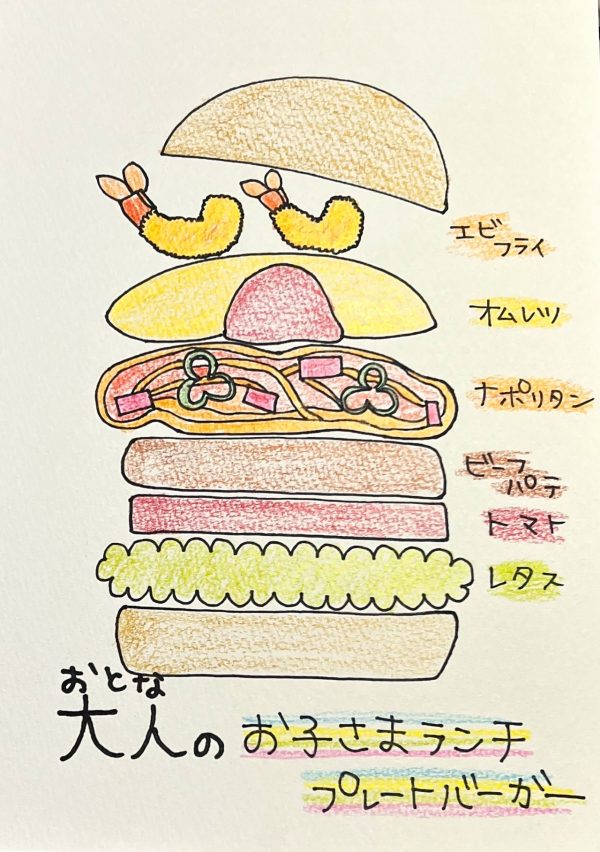 エビ
フライ
オムレツ
ナポリタン
ビーフ
パテ
トマト
レタス
おとな
大人のお子さまランチ
プレートバーガー